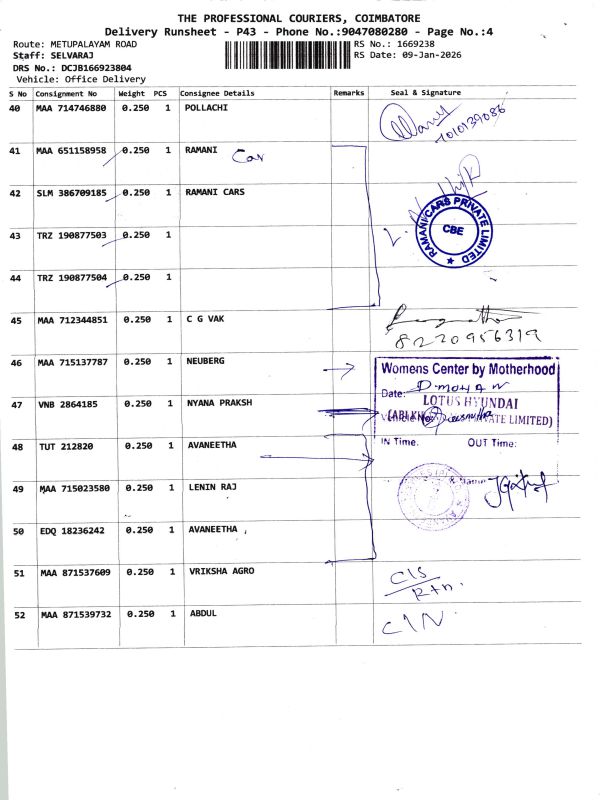 THE PROFESSIONAL COURIERS, COIMBATORE
Delivery Runsheet - P43 - Phone No.:9047080280 - Page No.:4
Route: METUPALAYAM ROAD
RS No.: 1669238
Staff: SELVARAJ
RS Date: 09-Jan-2026
DRS No.: DCJB166923804
Vehicle: Office Delivery
S No Consignment No Weight PCS Consignee Details Remarks Seal & Signature
40 MAA 714746880 0.250 1 POLLACHI
7010139086
41 MAA 651158958 0.250 1 RAMANI Car
42 SLM 386709185 0.250 1 RAMANI CARS
RAMANI CARS PRIVATE LIMITED
CBE
43 TRZ 190877503 0.250 1
44 TRZ 190877504 0.250 1
45 MAA 712344851 0.250 1 C G VAK
8220956319
46 MAA 715137787 0.250 1 NEUBERG
Womens Center by Motherhood
Date: D-MOHAN
47 VNB 2864185 0.250 1 NYANA PRAKSH
LOTUS HYUNDAI
PRIVATE LIMITED)
IN Time: OUT Time:
48 TUT 212820 0.250 1 AVANEETHA
49 MAA 715023580 0.250 1 LENIN RAJ
50 EDQ 18236242 0.250 1 AVANEETHA
51 MAA 871537609 0.250 1 VRIKSHA AGRO
C/S
Rtn.
52 MAA 871539732 0.250 1 ABDUL
C/N